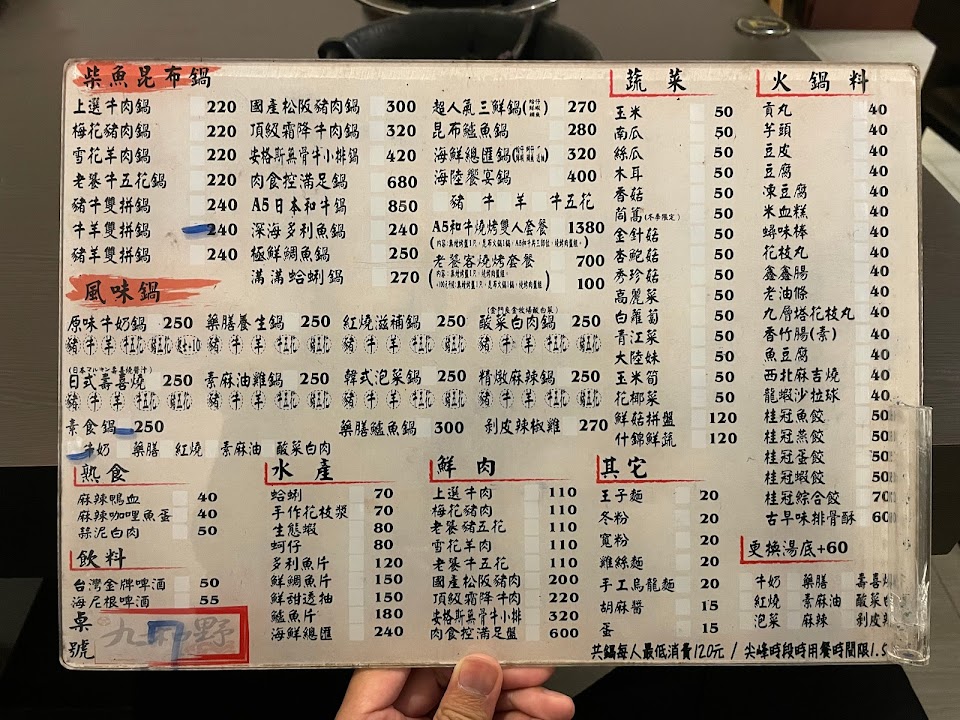 柴魚昆布鍋
上選牛肉鍋 220
梅花豬肉鍋 220
雪花羊肉鍋 220
老饕牛五花鍋 220
豬牛雙拼鍋 240
牛羊雙拼鍋 240
豬羊雙拼鍋 240
國產松阪豬肉鍋 300
頂級霜降牛肉鍋 320
安格斯無骨牛小排鍋 420
肉食控滿足鍋 680
A5日本和牛鍋 850
深海多利魚鍋 240
極鮮鯛魚鍋 250
滿滿蛤蜊鍋 270
超人氣三鮮鍋 270
昆布鱸魚鍋 280
海鮮總匯鍋 320
海陸饗宴鍋 400
豬 牛 羊 牛五花
A5和牛燒烤雙人套餐 1380
老饕客燒烤套餐 700
100
風味鍋
原味牛奶鍋 250 藥膳養生鍋 250 紅燒滋補鍋 250 酸菜白肉鍋 250
豬 牛 羊 牛五花 豬 牛 羊 牛五花 豬 牛 羊 牛五花 豬 牛 羊 牛五花
日式壽喜燒 250 素麻油雞鍋 250 韓式泡菜鍋 250 精燉麻辣鍋 250
豬 牛 羊 牛五花 豬 牛 羊 牛五花 豬 牛 羊 牛五花 豬 牛 羊 牛五花
素食鍋 250 藥膳鱸魚鍋 300 剝皮辣椒雞 270
牛奶 藥膳 紅燒 素麻油 酸菜白肉
熟食
麻辣鴨血 40
麻辣咖哩魚蛋 40
蒜泥白肉 50
飲料
台灣金牌啤酒 50
海尼根啤酒 55
桌號 7
水產
蛤蜊 70
手作花枝漿 70
生態蝦 80
蚵仔 80
多利魚片 120
鮮鯛魚片 150
鮮甜透抽 150
鱸魚片 180
海鮮總匯 240
鮮肉
上選牛肉 110
梅花豬肉 110
老饕豬五花 110
雪花羊肉 110
老饕牛五花 110
國產松阪豬肉 200
頂級霜降牛肉 220
安格斯無骨牛小排 320
肉食控滿足盤 600
蔬菜
玉米 50
南瓜 50
絲瓜 50
木耳 50
香菇 50
茼蒿(冬季限定) 50
金針菇 50
杏鮑菇 50
秀珍菇 50
高麗菜 50
白蘿蔔 50
青江菜 50
大陸妹 50
玉米筍 50
花椰菜 50
鮮菇拼盤 120
什錦鮮蔬 120
其它
王子麵 20
冬粉 20
寬粉 20
雞絲麵 20
手工烏龍麵 20
胡麻醬 15
蛋 15
火鍋料
貢丸 40
芋頭 40
豆皮 40
豆腐 40
凍豆腐 40
米血糕 40
蟳味棒 40
花枝丸 40
鑫鑫腸 40
老油條 40
九層塔花枝丸 40
香竹腸(素) 40
魚豆腐 40
西北麻吉燒 40
龍蝦沙拉球 40
桂冠魚餃 50
桂冠燕餃 50
桂冠蛋餃 50
桂冠蝦餃 50
桂冠綜合餃 70
古早味排骨酥 60
更換湯底+60
牛奶 藥膳 壽喜燒
紅燒 素麻油 酸菜
泡菜 麻辣 剝皮辣
共鍋每人最低消費120元 / 尖峰時段時用餐時間限1.5